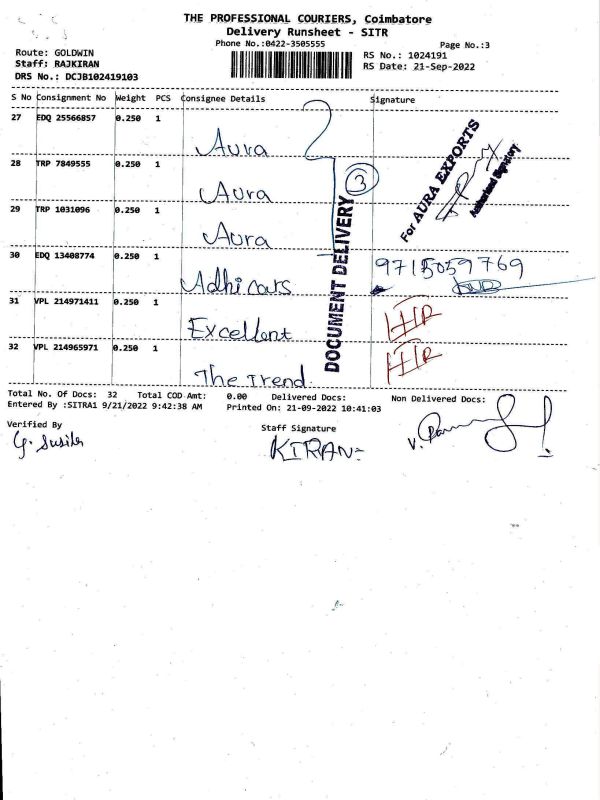 THE PROFESSIONAL COURIERS, Coimbatore
Delivery Runsheet - SITR
Phone No.:0422-3505555
Page No.:3
Route: GOLDWIN
RS No.: 1024191
Staff: RAJKIRAN
RS Date: 21-Sep-2022
DRS No.: DCJB102419103
S No Consignment No Weight PCS Consignee Details Signature
27 EDQ 25566857 0.250 1
Aura
28 TRP 7849555 0.250 1
Aura
29 TRP 1031096 0.250 1
Aura
3
DOCUMENT DELIVERY
For AURA EXPORTS
Authorised Signatory
30 EDQ 13408774 0.250 1
Adhi cars
9715059769
31 VPL 214971411 0.250 1
Excellent
32 VPL 214965971 0.250 1
The Trend
Total No. Of Docs: 32 Total COD Amt: 0.00 Delivered Docs: Non Delivered Docs:
Entered By :SITRA1 9/21/2022 9:42:38 AM Printed On: 21-09-2022 10:41:03
Verified By
Staff Signature
G. Susila
KIRAN